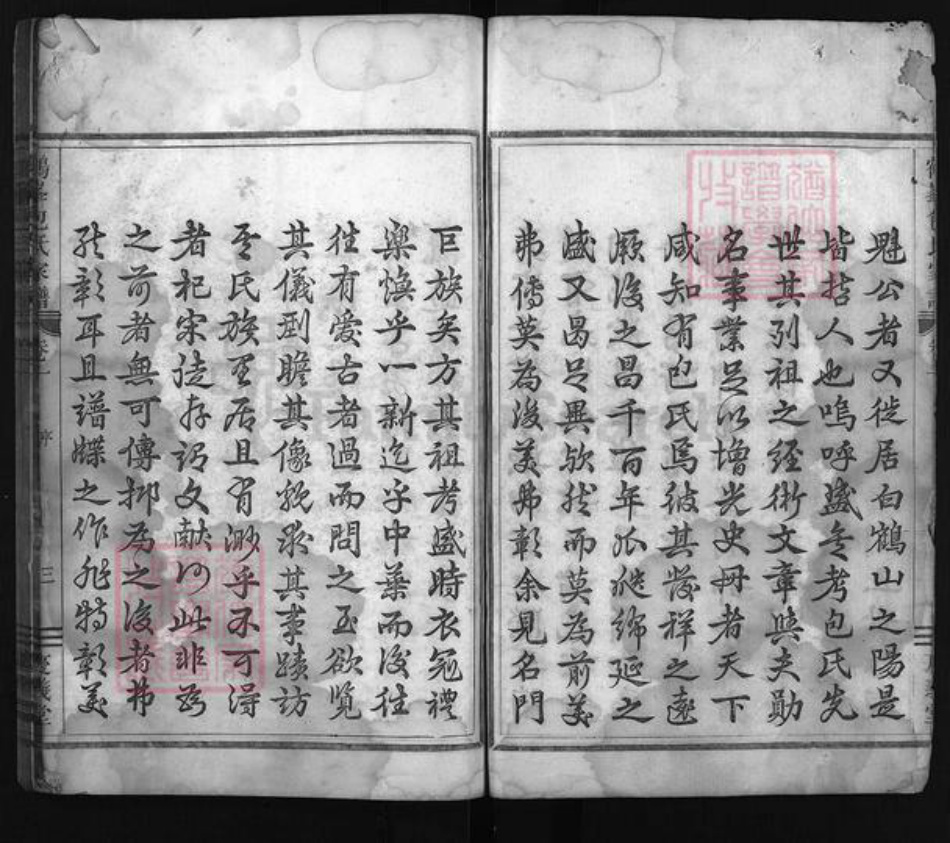 魁公者又徙居白鶴山之陽是
皆哲人也嗚呼盛矣考包氏先
世其列祖之經術文章與夫勛
名事業足以增光史冊者天下
咸知有包氏焉彼其發祥之遠
厥後之昌千百年瓜瓞綿延之
盛又曷足異欤然而莫為前美
弗傳莫為後美弗彰余見名門
巨族矣方其祖考盛時衣冠禮
樂煥乎一新迄乎中葉而後往
往有愛古者過而問之至欲覽
其儀型瞻其像貌求其事蹟訪
其氏族里居且有渺乎不可得
者杞宋徒存謂文獻何此非為
之前者無可傳抑為之後者弗
能彰耳且譜牒之作非特彰美
鶴峯包氏宗譜
卷一
序
三